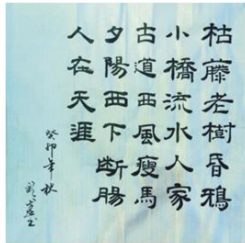 枯藤老樹昏鴉
小橋流水人家
古道西風瘦馬
夕陽西下斷腸
人在天涯
癸卯年秋